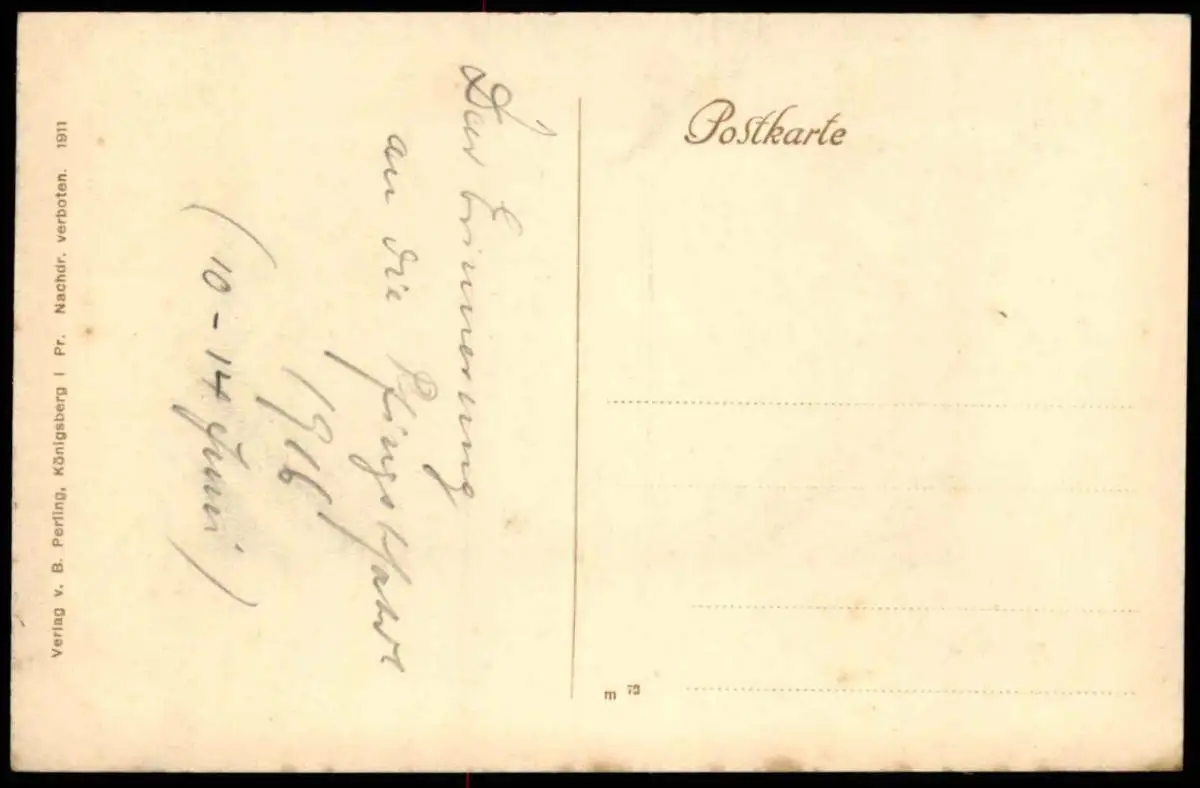 Postkarte
Zur Erinnerung
an die Pfingstfahrt
1916
(10-14 Juni)
Verlag v. B. Perling, Königsberg i Pr. Nachdr. verboten. 1911
m 72